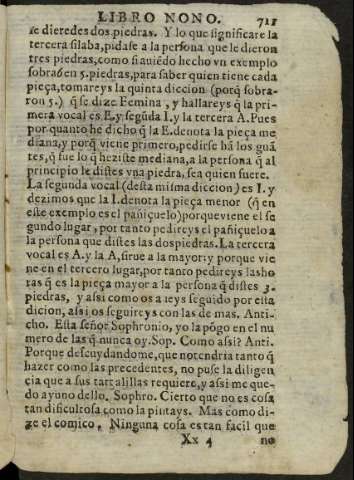 LIBRO NONO. 711
le dieredes dos piedras. Y lo que significare la
tercera silaba, pidase a la persona que le dieron
tres piedras, como si auiẽdo hecho vn exemplo
sobrasẽ en 5. piedras, para saber quien tiene cada
pieça, tomareys la quinta diccion (porq̃ sobra-
ron 5.) q̃ se dize Femina, y hallareys q̃ la pri-
mera vocal es E. y segũda I. y la tercera A. Pues
por quanto he dicho q̃ la E. denota la pieça me
diana, y porq̃ viene primero, pedirse hã los guã
tes, q̃ fue lo q̃ heziste mediana, a la persona q̃ al
principio le distes vna piedra, sea quien fuere.
La segunda vocal (desta misma diccion) es I. y
dezimos que la I. denota la pieça menor (q̃ en
este exemplo es el pañiçuelo) porque viene el se
gundo lugar, por tanto pedireys el pañiçuelo a
la persona que distes las dos piedras. La tercera
vocal es A. y la A, sirue a la mayor: y porque vie
ne en el tercero lugar, por tanto pedireys las ho
ras q̃ es la pieça mayor a la persona q̃ distes 3.
piedras, y assi como os aueys seguido por esta
dicion, assi os seguireys con las de mas. Anti-
cho. Esta señor Sophronio, yo la põgo en el nu
mero de las q̃ nunca oy. Sop. Como assi? Anti.
Porque descuydandome, que no tendria tanto q̃
hazer como las precedentes, no puse la diligen
cia que a sus tartalillas requiere, y assi me que-
do ayuno dello. Sophro. Cierto que no es cosa
tan dificultosa como la pintays. Mas como di-
ze el comico, Ninguna cosa es tan facil que
Xx 4 no